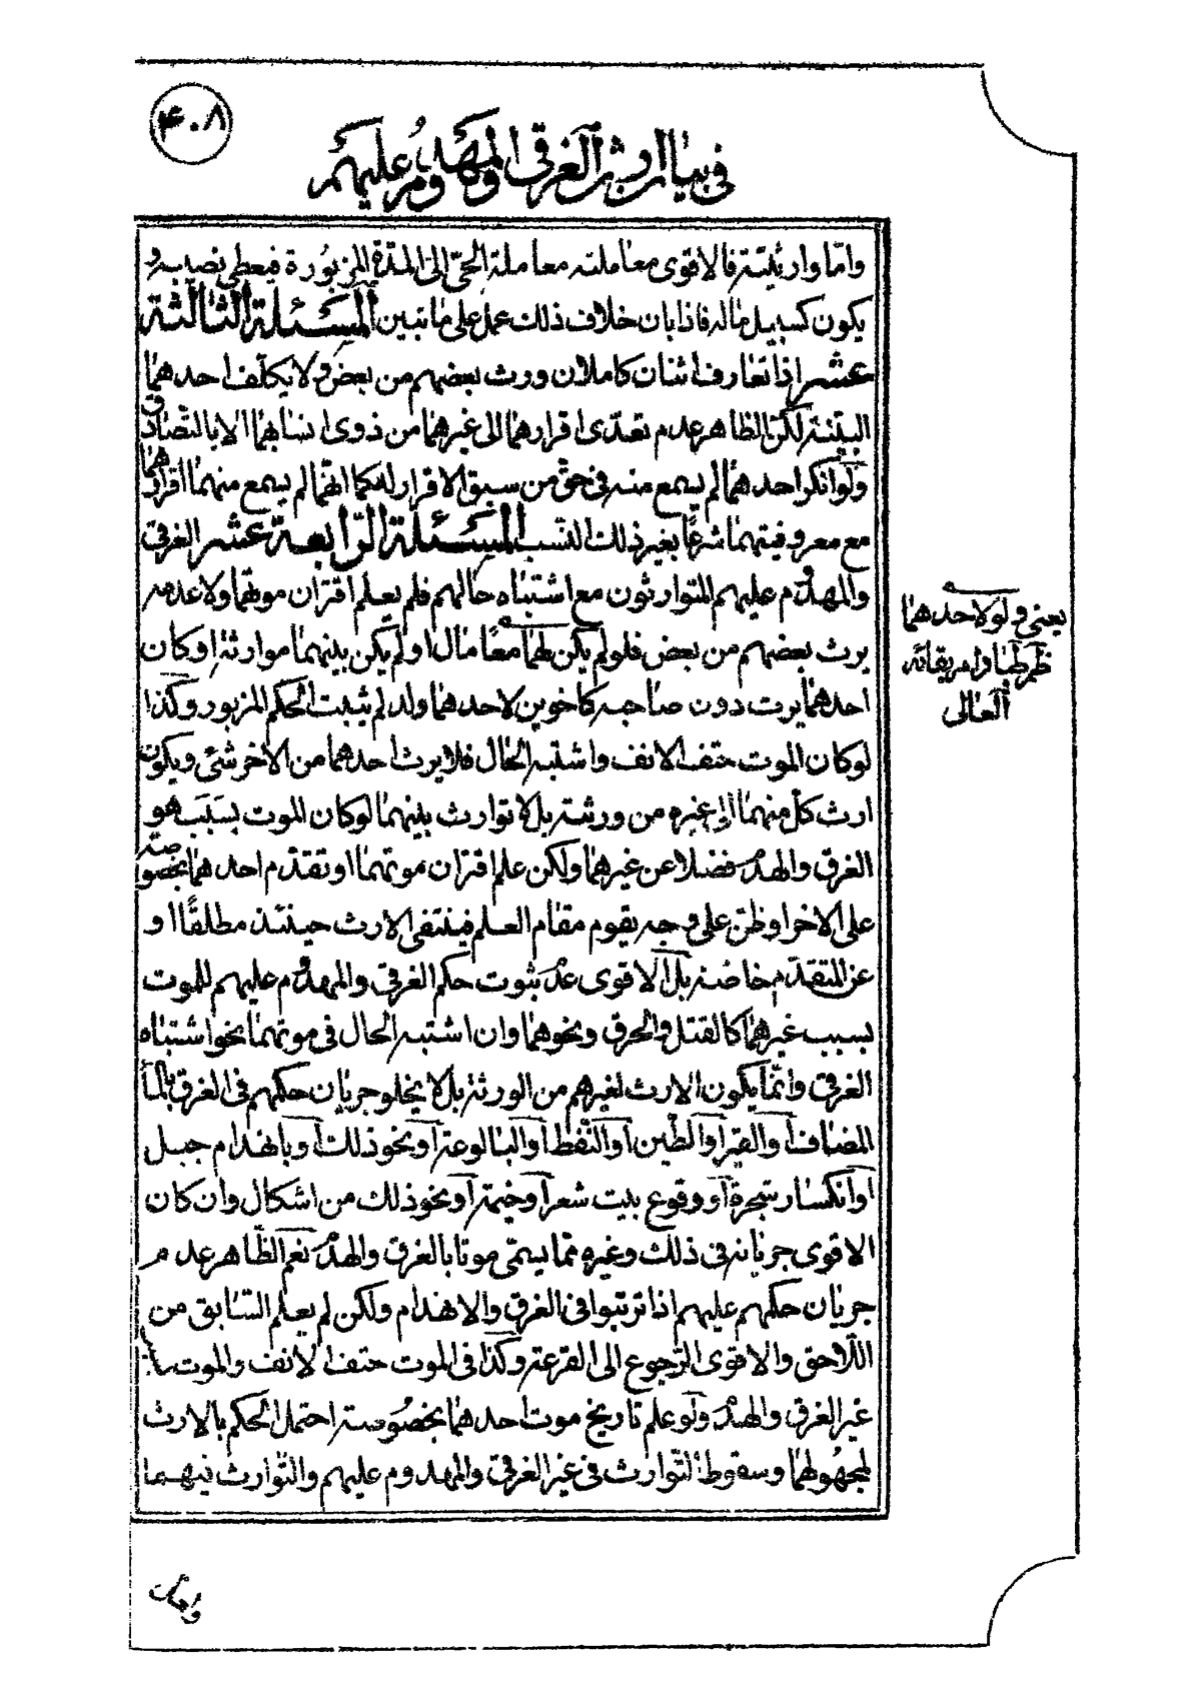 ۴۰۸
في بيان ارث الغرقى والمهدوم عليهم
وامّا وارثيّته فالاقوى معاملته معاملة الحىّ الى المدّة المزبورة فيعطى نصيبه و
يكون كسبيل ماله فاذا بان خلاف ذلك عمل على ما تبين المسئلة الثالثة
عشر اذا تعارف اثنان كاملان ورث بعضهم من بعض ولا يكلّف احدهما
البيّنة لكنّ الظاهر عدم تعدّى اقرارهما الى غيرهما من ذوى انسابهما الا بالتصادق
ولو انكر احدهما لم يسمع منه في حقّ من سبق الاقرار له كما انّهما لم يسمع منهما اقرارهما
مع معروفيتهما شرعًا بغير ذلك النسب المسئلة الرّابعة عشر الغرقى
والمهدوم عليهم المتوارثون مع اشتباه حالهم فلم يعلم اقتران موتهما ولا عدمه
يرث بعضهم من بعض فلو لم يكن لهما معًا مال او لم يكن بينهما موارثة او كان
احدهما يرث دون صاحبه كاخوين لاحدهما ولد لم يثبت الحكم المزبور وكذا
لو كان الموت حتف الانف واشتبه الحال فلا يرث احدهما من الاخر شئ ويكون
ارث كلّ منهما الى غيره من ورثته بل لا توارث بينهما لو كان الموت بسبب هو
الغرق والهدم فضلا عن غيرهما ولكن علم اقتران موتهما او تقدّم احدهما بخصوصه
على الاخر او ظنّ على وجه يقوم مقام العلم فينتفى الارث حينئذ مطلقًا او
عن المتقدّم خاصّة بل الاقوى عدم ثبوت حكم الغرقى والمهدوم عليهم للموت
بسبب غيرهما كالقتل والحرق ونحوهما وان اشتبه الحال في موتهما نحو اشتباه
الغرقى وانّما يكون الارث لغيرهم من الورثة بل لا يخلو جريان حكمهم في الغرق بالماء
المضاف او القير او الطين او النفط او البالوعة او نحو ذلك او بانهدام جبل
او انكسار شجرة او وقوع بيت شعر او خيمة او نحو ذلك من اشكال وان كان
الاقوى جريانه في ذلك وغيره ممّا يسمّى موتا بالغرق والهدم نعم الظّاهر عدم
جريان حكمهم عليهم اذا ترتبوا في الغرق والانهدام ولكن لم يعلم السّابق من
اللّاحق والاقوى الرّجوع الى القرعة وكذا في الموت حتف الانف والموت
غير الغرق والهدم ولو علم تاريخ موت احدهما بخصوصه احتمل الحكم بالارث
لمجهولهما وسقوط التّوارث في غير الغرقى والمهدوم عليهم والتّوارث فيهما
يعنى ولو لاحدهما
العالى
وامّا